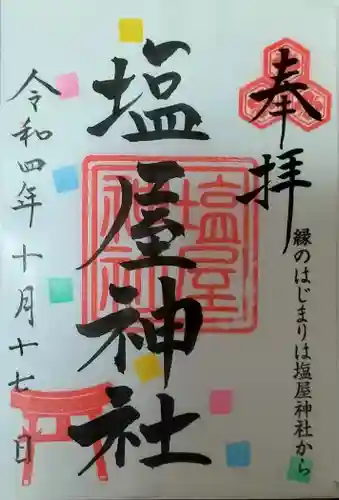 奉拝
縁のはじまりは塩屋神社から
塩屋神社
塩屋神社
令和四年十月十七日